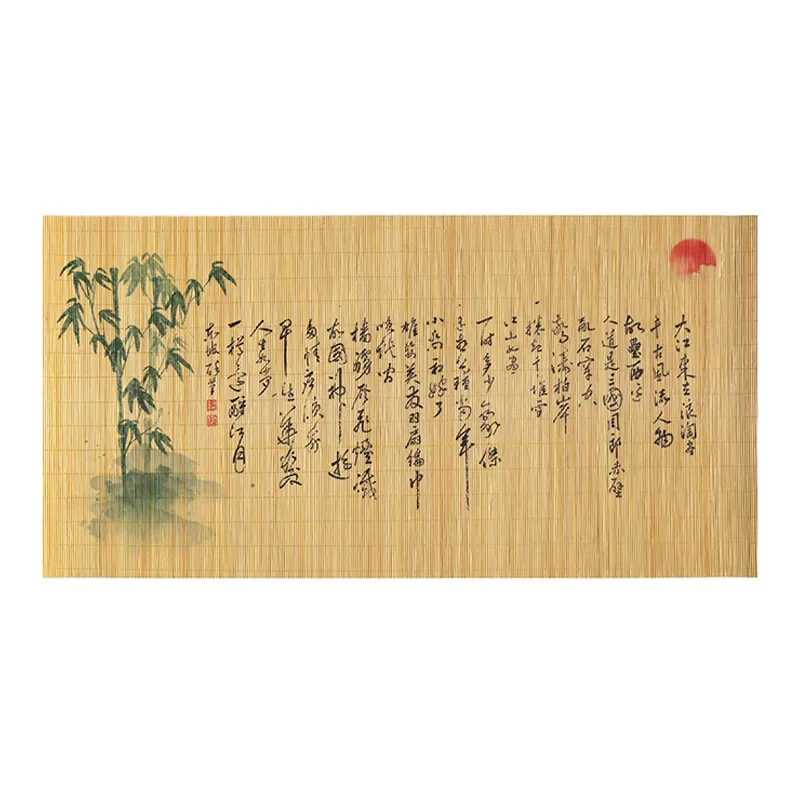 大江東去浪淘盡
千古風流人物
故壘西邊
人道是三國周郎赤壁
亂石穿空
驚濤拍岸
捲起千堆雪
江山如畫
一時多少豪傑
遙想公瑾當年
小喬初嫁了
雄姿英發羽扇綸巾
笑談間
檣櫓灰飛煙滅
故國神遊
多情應笑我
早生華髮
人生如夢
一樽還酹江月
東坡